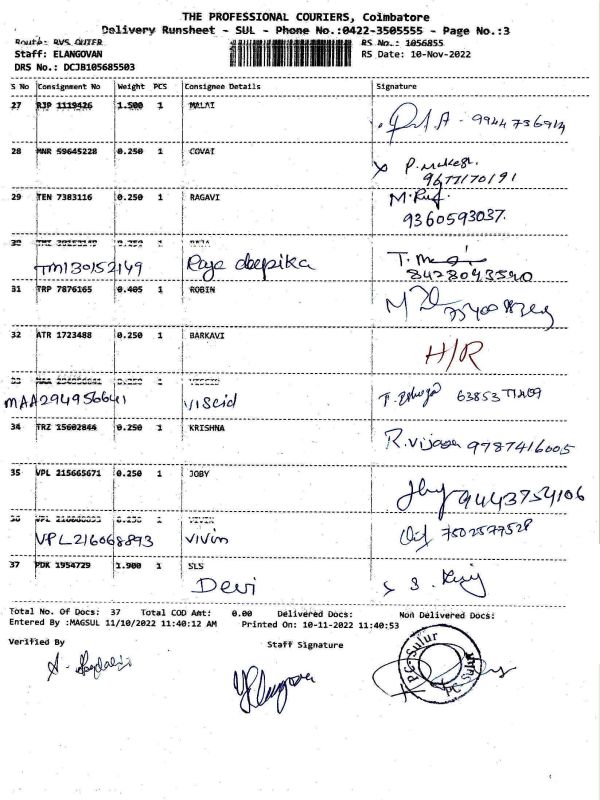 THE PROFESSIONAL COURIERS, Coimbatore
Delivery Runsheet - SUL - Phone No.:0422-3505555 - Page No.:3
Route: RVS OUTER RS No.: 1056855
Staff: ELANGOVAN RS Date: 10-Nov-2022
DRS No.: DCJB105685503
S No Consignment No Weight PCS Consignee Details Signature
27 RJP 1119426 1.500 1 MALAI
9944736914
28 MNR 59645228 0.250 1 COVAI
P. Mukesh.
9677170191
29 TEN 7383116 0.250 1 RAGAVI
9360593037.
30
TMI30152149 Raja deepika
8428043540
31 TRP 7876165 0.405 1 ROBIN
32 ATR 1723488 0.250 1 BARKAVI
H/R
33
MAA294956641 Viscid
34 TRZ 15602844 0.250 1 KRISHNA
R. Vijaya 9787416005
35 VPL 215665671 0.250 1 JOBY
9443754106
36 VPL 216068893 0.250 1 VIVIN
VPL216068893 Vivin 7502577528
37 PDK 1954729 1.900 1 SLS
Devi
Total No. Of Docs: 37 Total COD Amt: 0.00 Delivered Docs: Non Delivered Docs:
Entered By :MAGSUL 11/10/2022 11:40:12 AM Printed On: 10-11-2022 11:40:53
Verified By Staff Signature
PC-Sulur
PC-Sulur